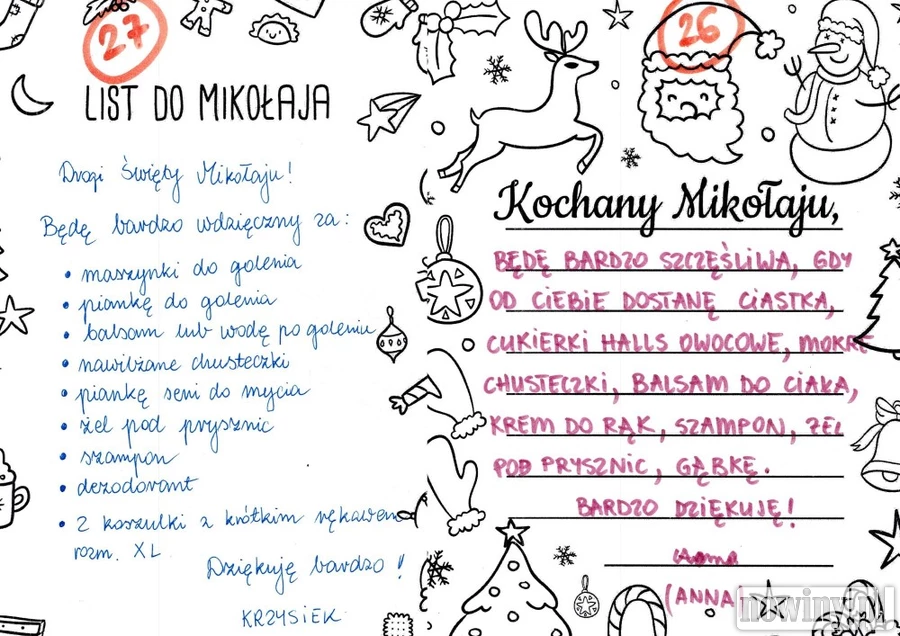 27
LIST DO MIKOŁAJA
Drogi Święty Mikołaju!
Będę bardzo wdzięczny za:
• maszynki do golenia
• piankę do golenia
• balsam lub wodę po goleniu
• nawilżane chusteczki
• piankę seni do mycia
• żel pod prysznic
• szampon
• dezodorant
• 2 koszulki z krótkim rękawem
rozm. XL
Dziękuję bardzo!
KRZYSIEK
26
Kochany Mikołaju,
BĘDĘ BARDZO SZCZĘŚLIWA, GDY
OD CIEBIE DOSTANĘ CIASTKA,
CUKIERKI HALLS OWOCOWE, MOKRE
CHUSTECZKI, BALSAM DO CIAŁA,
KREM DO RĄK, SZAMPON, ŻEL
POD PRYSZNIC, GĄBKĘ.
BARDZO DZIĘKUJĘ!
Anna
(ANNA)
nowiny.pl